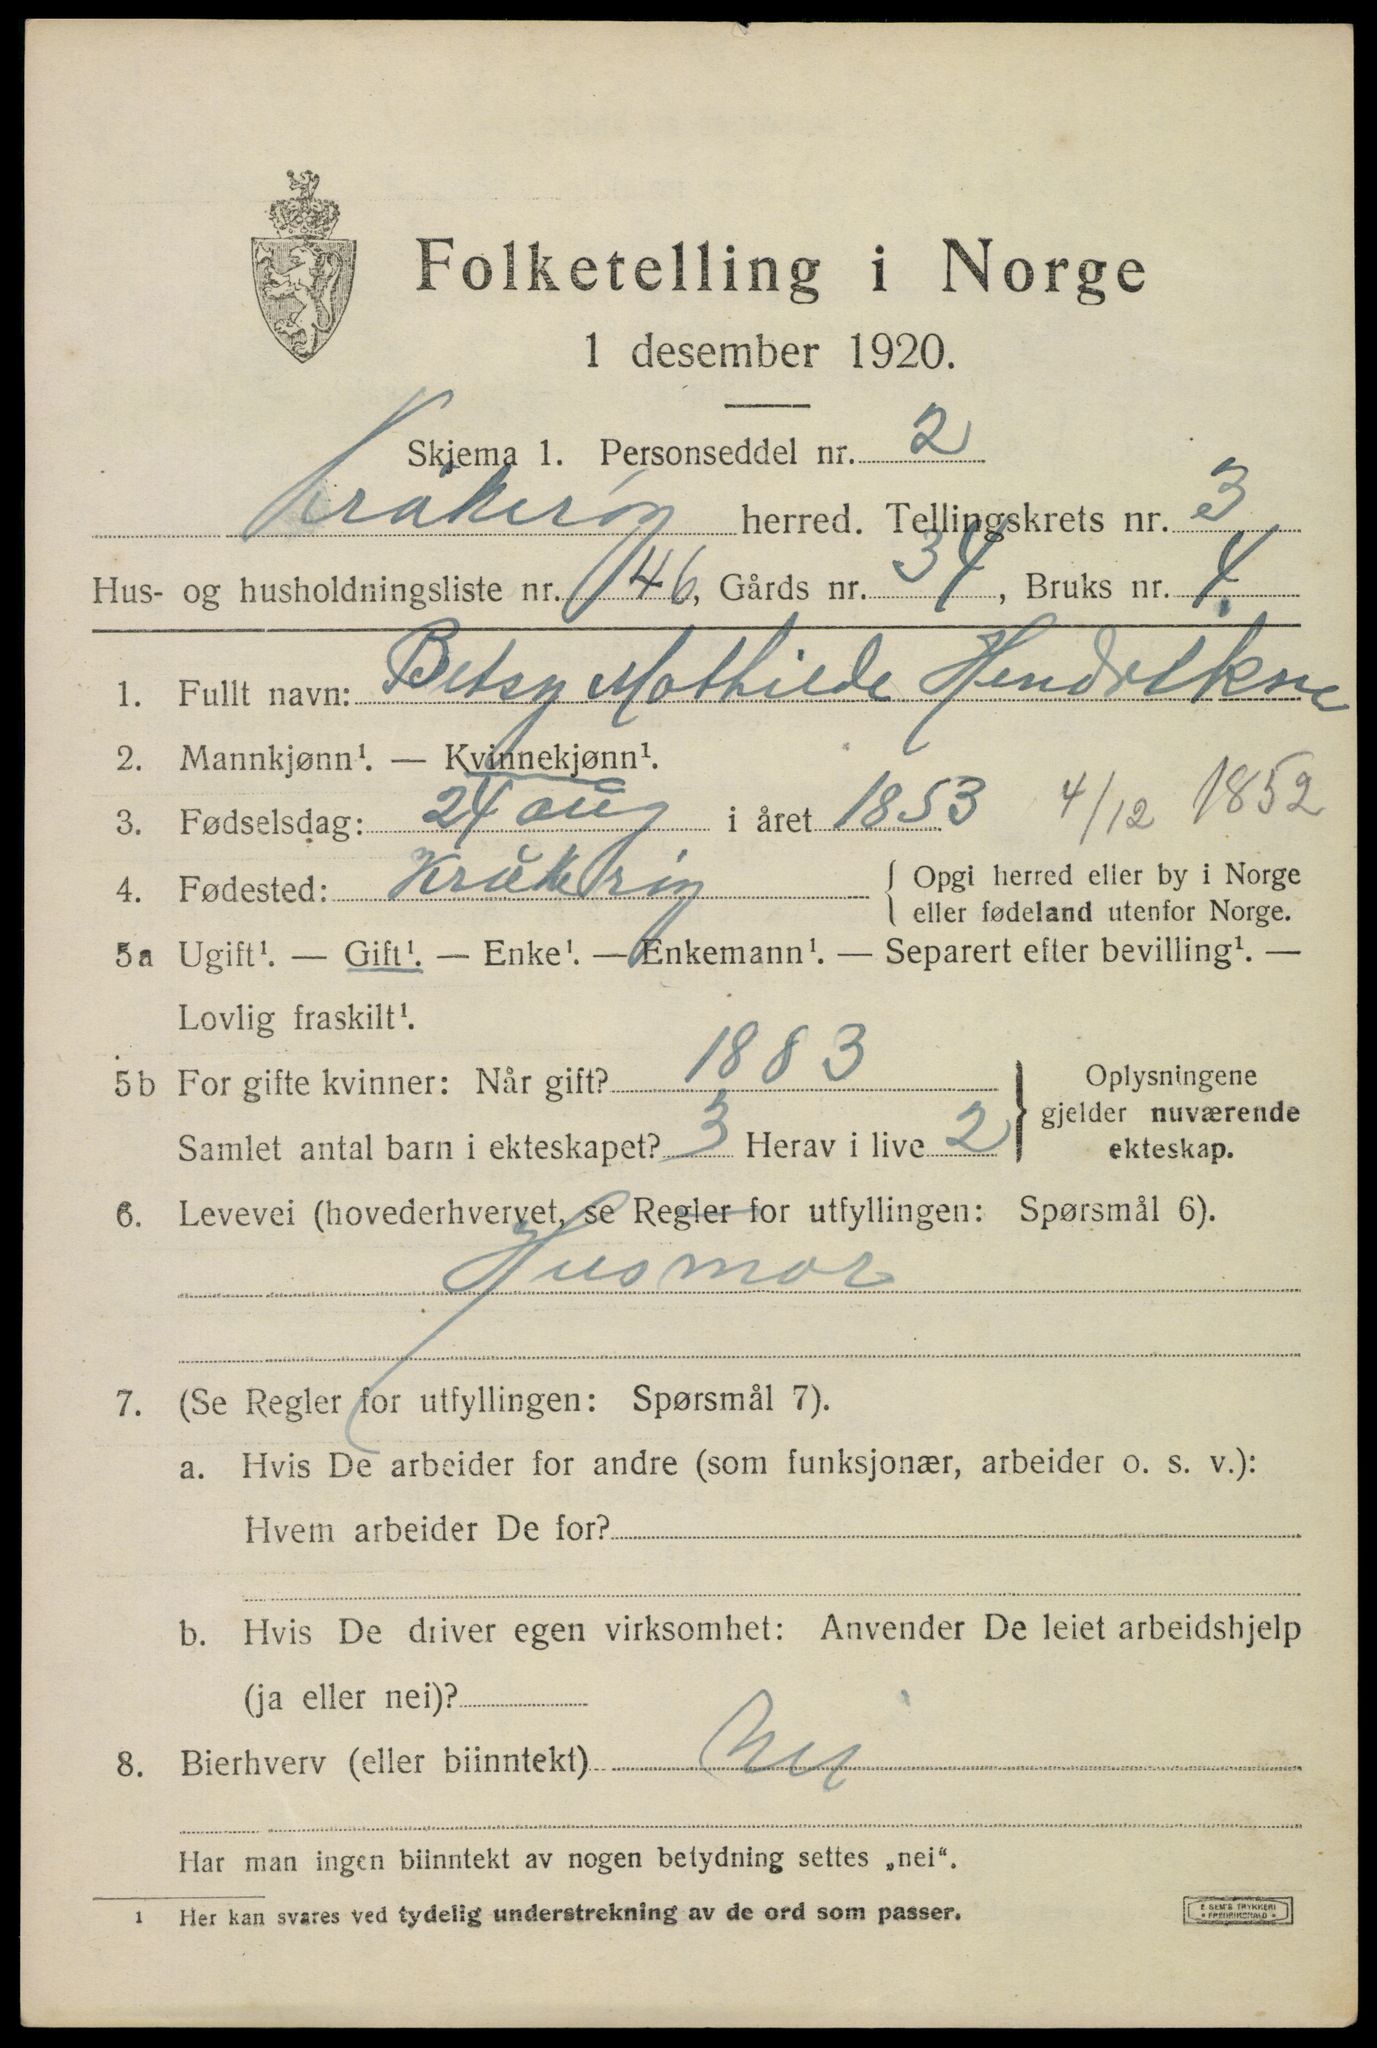 Folketelling i Norge
1 desember 1920.
Skjema 1. Personseddel nr. 2
Kråkerøy herred. Tellingskrets nr. 3
Hus- og husholdningsliste nr. 146, Gårds nr. 34, Bruks nr. 4.
1. Fullt navn: Betsy Mathilde Hendrikne
2. Mannkjønn¹. — Kvinnekjønn¹.
3. Fødselsdag: 24 aug i året 1853 4/12 1852
4. Fødested: Kråkerøy { Opgi herred eller by i Norge
eller fødeland utenfor Norge.
5a Ugift¹. — Gift¹. — Enke¹. — Enkemann¹. — Separert efter bevilling¹. —
Lovlig fraskilt¹.
5b For gifte kvinner: Når gift? 1883
Samlet antal barn i ekteskapet? 3 Herav i live 2
} Oplysningene
gjelder nuværende
ekteskap.
6. Levevei (hovederhvervet, se Regler for utfyllingen: Spørsmål 6).
Husmor
7. (Se Regler for utfyllingen: Spørsmål 7).
a. Hvis De arbeider for andre (som funksjonær, arbeider o. s. v.):
Hvem arbeider De for?
b. Hvis De driver egen virksomhet: Anvender De leiet arbeidshjelp
(ja eller nei)?
8. Bierhverv (eller biinntekt) Nei
Har man ingen biinntekt av nogen betydning settes „nei“.
1 Her kan svares ved tydelig understrekning av de ord som passer.
E SEM'S TRYKKERI
FREDRIKSHALD